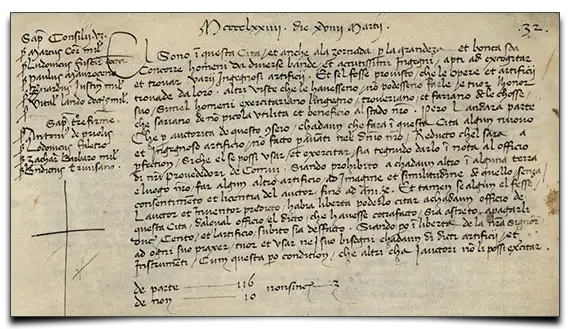 Mcccclxxiiii. die xviiii Martij. 32.
Sap. Consilij
Marcus Cor. mil
Ludovicus Fuscar. doct.
Paulus Mauroceno
Bernardus Justin. mil
Vital Lando doct. mil
Sap. tre firme.
Antoni de priolis
Ludovicus Faletro
Zachar Barbaro mil
trivisano
El Sono i questa Cita, et anche ala zornada p la grandeza et bonta soa
Concorre homeni da diverse bande, et acutissimi Ingegni, apti ad excogitar
et trovar varij Ingegnosi artificij. Et sel fosse provisto, che le opere et artificij
trovade da loro, altri viste che le havesseno, no podesseno farle, e tuor l honor
suo, Simel homeni exercitariano lingegno, troveriano, et fariano de le chosse,
che sariano de no picola utilita et beneficio al stado nro. Pero L andara parte
Che p auctorita de questo Conseio, chadaun che fara i questa Cita algun nuovo
et Ingegnoso artificio, no facto p avanti nel dnio nro, Reducto chel sara a
pfection, Siche el se possi usar, et exercitar, sia tegnudo darlo i nota al officio
di nri provededori de Comun. Siando prohibito a chadaun altro i alguna terra
e luogo nro, far algun altro artificio, ad imagine et similitudine de quello, senza
consentimeto et licentia del auctor, fino ad ani x. Et tamen se algun el fesse,
L auctor et inventor predicto, habia liberta poderlo citar achadaun officio de
questa Cita, dal qual officio el dicto, che havesse cotrafacto, sia astreto, apagarli
duc. Cento, et lartificio, subito sia desfacto. Siando po i liberta de la nra Signoria
ad ogni suo piaxer, tuor et usar ne i suo bisogni chadaun di dicti artificij, et
Instrumeti, Cum questa po condition, che altri cha i auctori no li possi exercitar.
de parte 116 nonsinc 3
de non 10